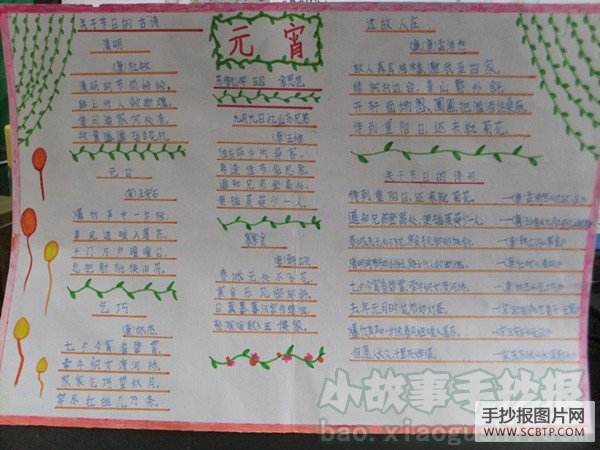 关于节日的古诗
清明
(唐)杜牧
清明时节雨纷纷,
路上行人欲断魂。
借问酒家何处有,
牧童遥指杏花村。
元日
爆竹声中一岁除
春风送暖入屠苏。
千门万户曈曈日,
总把新桃换旧符。
乞巧
(唐)林杰
七夕今宵看碧霄,
牵牛织女渡河桥。
家家乞巧望秋月,
穿尽红丝几万条。
元宵
九月九日忆山东兄弟
(唐)王维
独在异乡为异客,
每逢佳节倍思亲。
遥知兄弟登高处,
便插茱萸少一人。
寒食
(唐)韩翃
春城无处不飞花,
寒食东风御柳斜。
日暮汉宫传蜡烛,
轻烟散入五侯家。
过故人庄
(唐)孟浩然
故人具鸡黍,邀我至田家。
绿树村边合,青山郭外斜。
开轩面场圃,把酒话桑麻。
待到重阳日,还来就菊花。
关于节日的诗句
待到重阳日,还来就菊花。
遥知兄弟登高处,便插茱萸少一人。
春城无处不飞花,寒食东风御柳斜。
清明时节雨纷纷,路上行人欲断魂。
七夕今宵看碧霄,牵牛织女渡河桥。
去年元月时,花市灯如昼。
爆竹声中一岁除,春风送暖入屠苏。
但愿人长久,千里共婵娟。
小故事手抄报
bao.xiaogu
手抄报图片网
WWW.SCBTP.COM